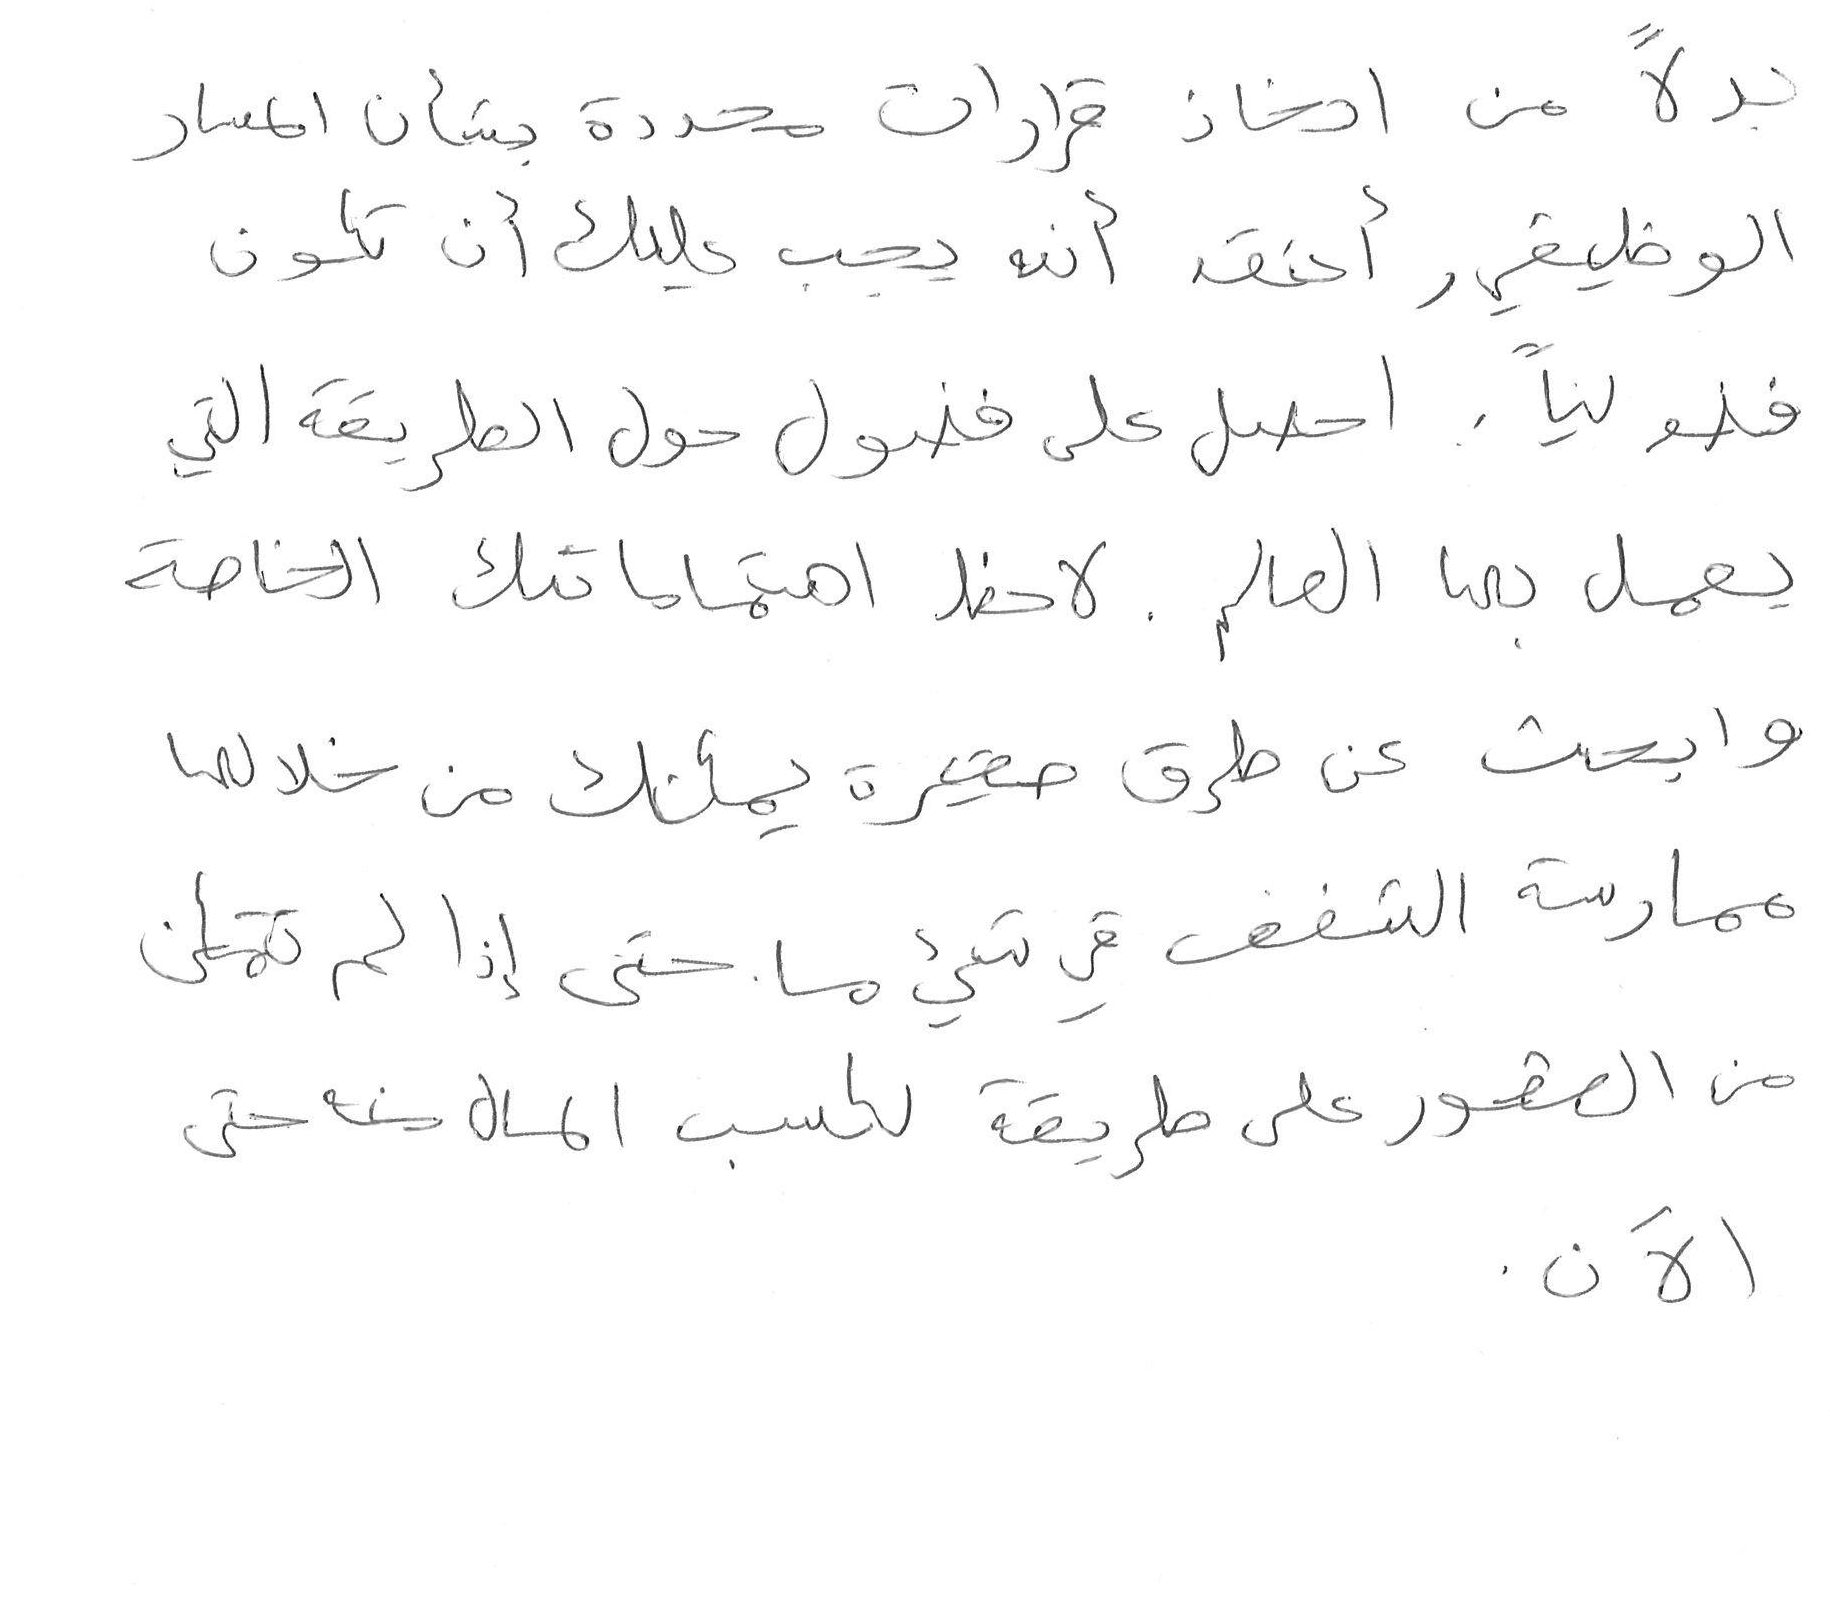 بدلاً من اتخاذ قرارات محددة بشأن المسار
الوظيفي, أعتقد أنه يجب عليك أن تكون
فضولياً. احصل على فضول حول الطريقة التي
يعمل بها العالم. لاحظ اهتماماتك الخاصة
وابحث عن طرق صغيرة يمكنك من خلالها
ممارسة الشغف في شيء ما. حتى إذا لم تتمكن
من العثور على طريقة لكسب المال منه حتى
الآن.